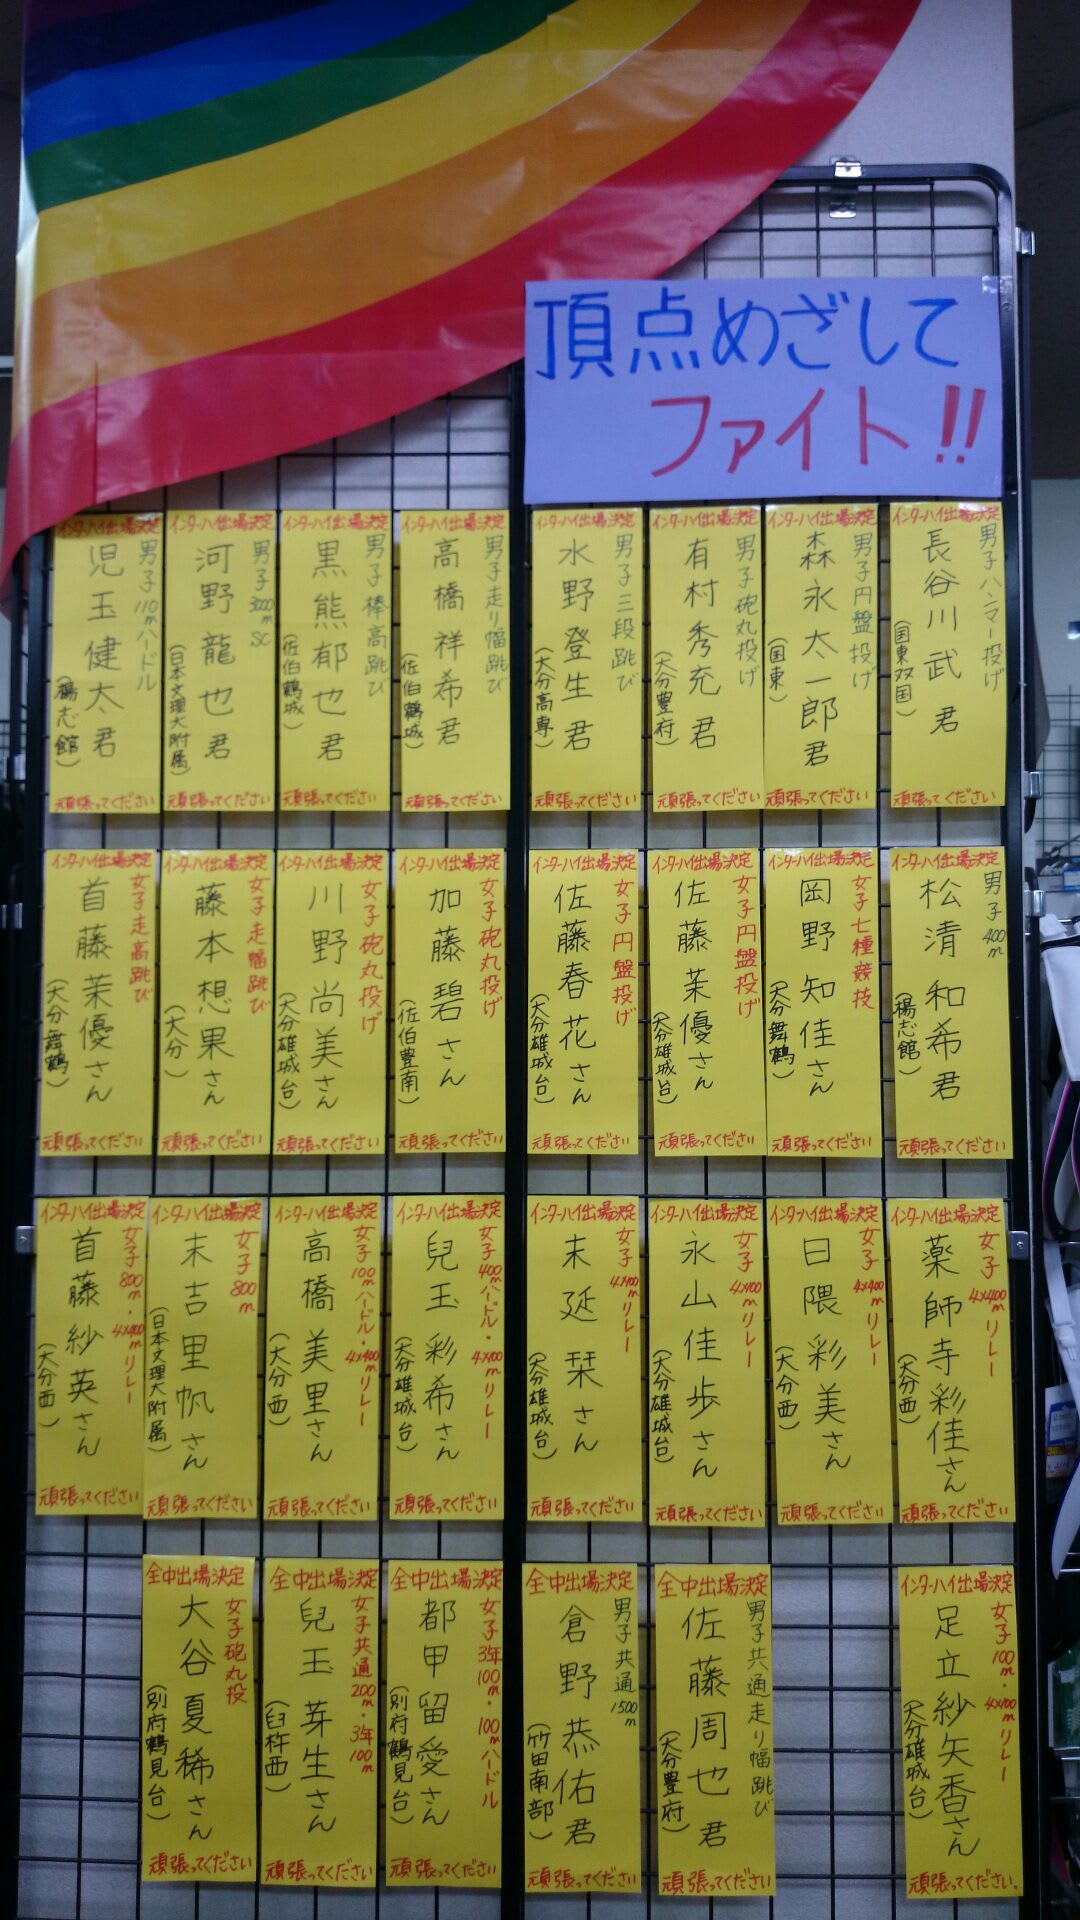 頂点めざして
ファイト!!
インターハイ出場決定
男子ハンマー投げ
長谷川武君
(国東双国)
頑張ってください
インターハイ出場決定
男子円盤投げ
森永太一郎君
(国東)
頑張ってください
インターハイ出場決定
男子砲丸投げ
有村秀充君
(大分豊府)
頑張ってください
インターハイ出場決定
男子三段跳び
水野登生君
(大分高専)
頑張ってください
インターハイ出場決定
男子走り幅跳び
高橋祥希君
(佐伯鶴城)
頑張ってください
インターハイ出場決定
男子棒高跳び
黒熊郁也君
(佐伯鶴城)
頑張ってください
インターハイ出場決定
男子3000mSC
河野龍也君
(日本文理大附属)
頑張ってください
インターハイ出場決定
男子110mハードル
児玉健太君
(楊志館)
頑張ってください
インターハイ出場決定
男子400m
松清和希君
(楊志館)
頑張ってください
インターハイ出場決定
女子七種競技
岡野知佳さん
(大分舞鶴)
頑張ってください
インターハイ出場決定
女子円盤投げ
佐藤茉優さん
(大分雄城台)
頑張ってください
インターハイ出場決定
女子円盤投げ
佐藤春花さん
(大分雄城台)
頑張ってください
インターハイ出場決定
女子砲丸投げ
加藤碧さん
(佐伯豊南)
頑張ってください
インターハイ出場決定
女子砲丸投げ
川野尚美さん
(大分雄城台)
頑張ってください
インターハイ出場決定
女子走幅跳び
藤本想果さん
(大分)
頑張ってください
インターハイ出場決定
女子走高跳び
首藤茉優さん
(大分舞鶴)
頑張ってください
インターハイ出場決定
女子4×400mリレー
薬師寺彩佳さん
(大分西)
頑張ってください
インターハイ出場決定
女子4×400mリレー
日隈彩美さん
(大分西)
頑張ってください
インターハイ出場決定
女子4×100mリレー
永山佳歩さん
(大分雄城台)
頑張ってください
インターハイ出場決定
女子4×100mリレー
末延栞さん
(大分雄城台)
頑張ってください
インターハイ出場決定
女子400mハードル・4×100mリレー
兒玉彩希さん
(大分雄城台)
頑張ってください
インターハイ出場決定
女子100mハードル・4×400mリレー
高橋美里さん
(大分西)
頑張ってください
インターハイ出場決定
女子800m
末吉里帆さん
(日本文理大附属)
頑張ってください
インターハイ出場決定
女子800m・4×400mリレー
首藤紗英さん
(大分西)
頑張ってください
インターハイ出場決定
女子100m・4×100mリレー
足立紗矢香さん
(大分雄城台)
頑張ってください。
全中出場決定
男子共通走り幅跳び
佐藤周也君
(大分豊府)
頑張ってください
全中出場決定
男子共通1500m
倉野恭佑君
(竹田南部)
頑張ってください
全中出場決定
女子3年100m・100mハードル
都甲留愛さん
(別府鶴見台)
頑張ってください
全中出場決定
女子共通200m・3年100m
兒玉芽生さん
(臼杵西)
頑張ってください
全中出場決定
女子砲丸投
大谷夏稀さん
(別府鶴見台)
頑張ってください